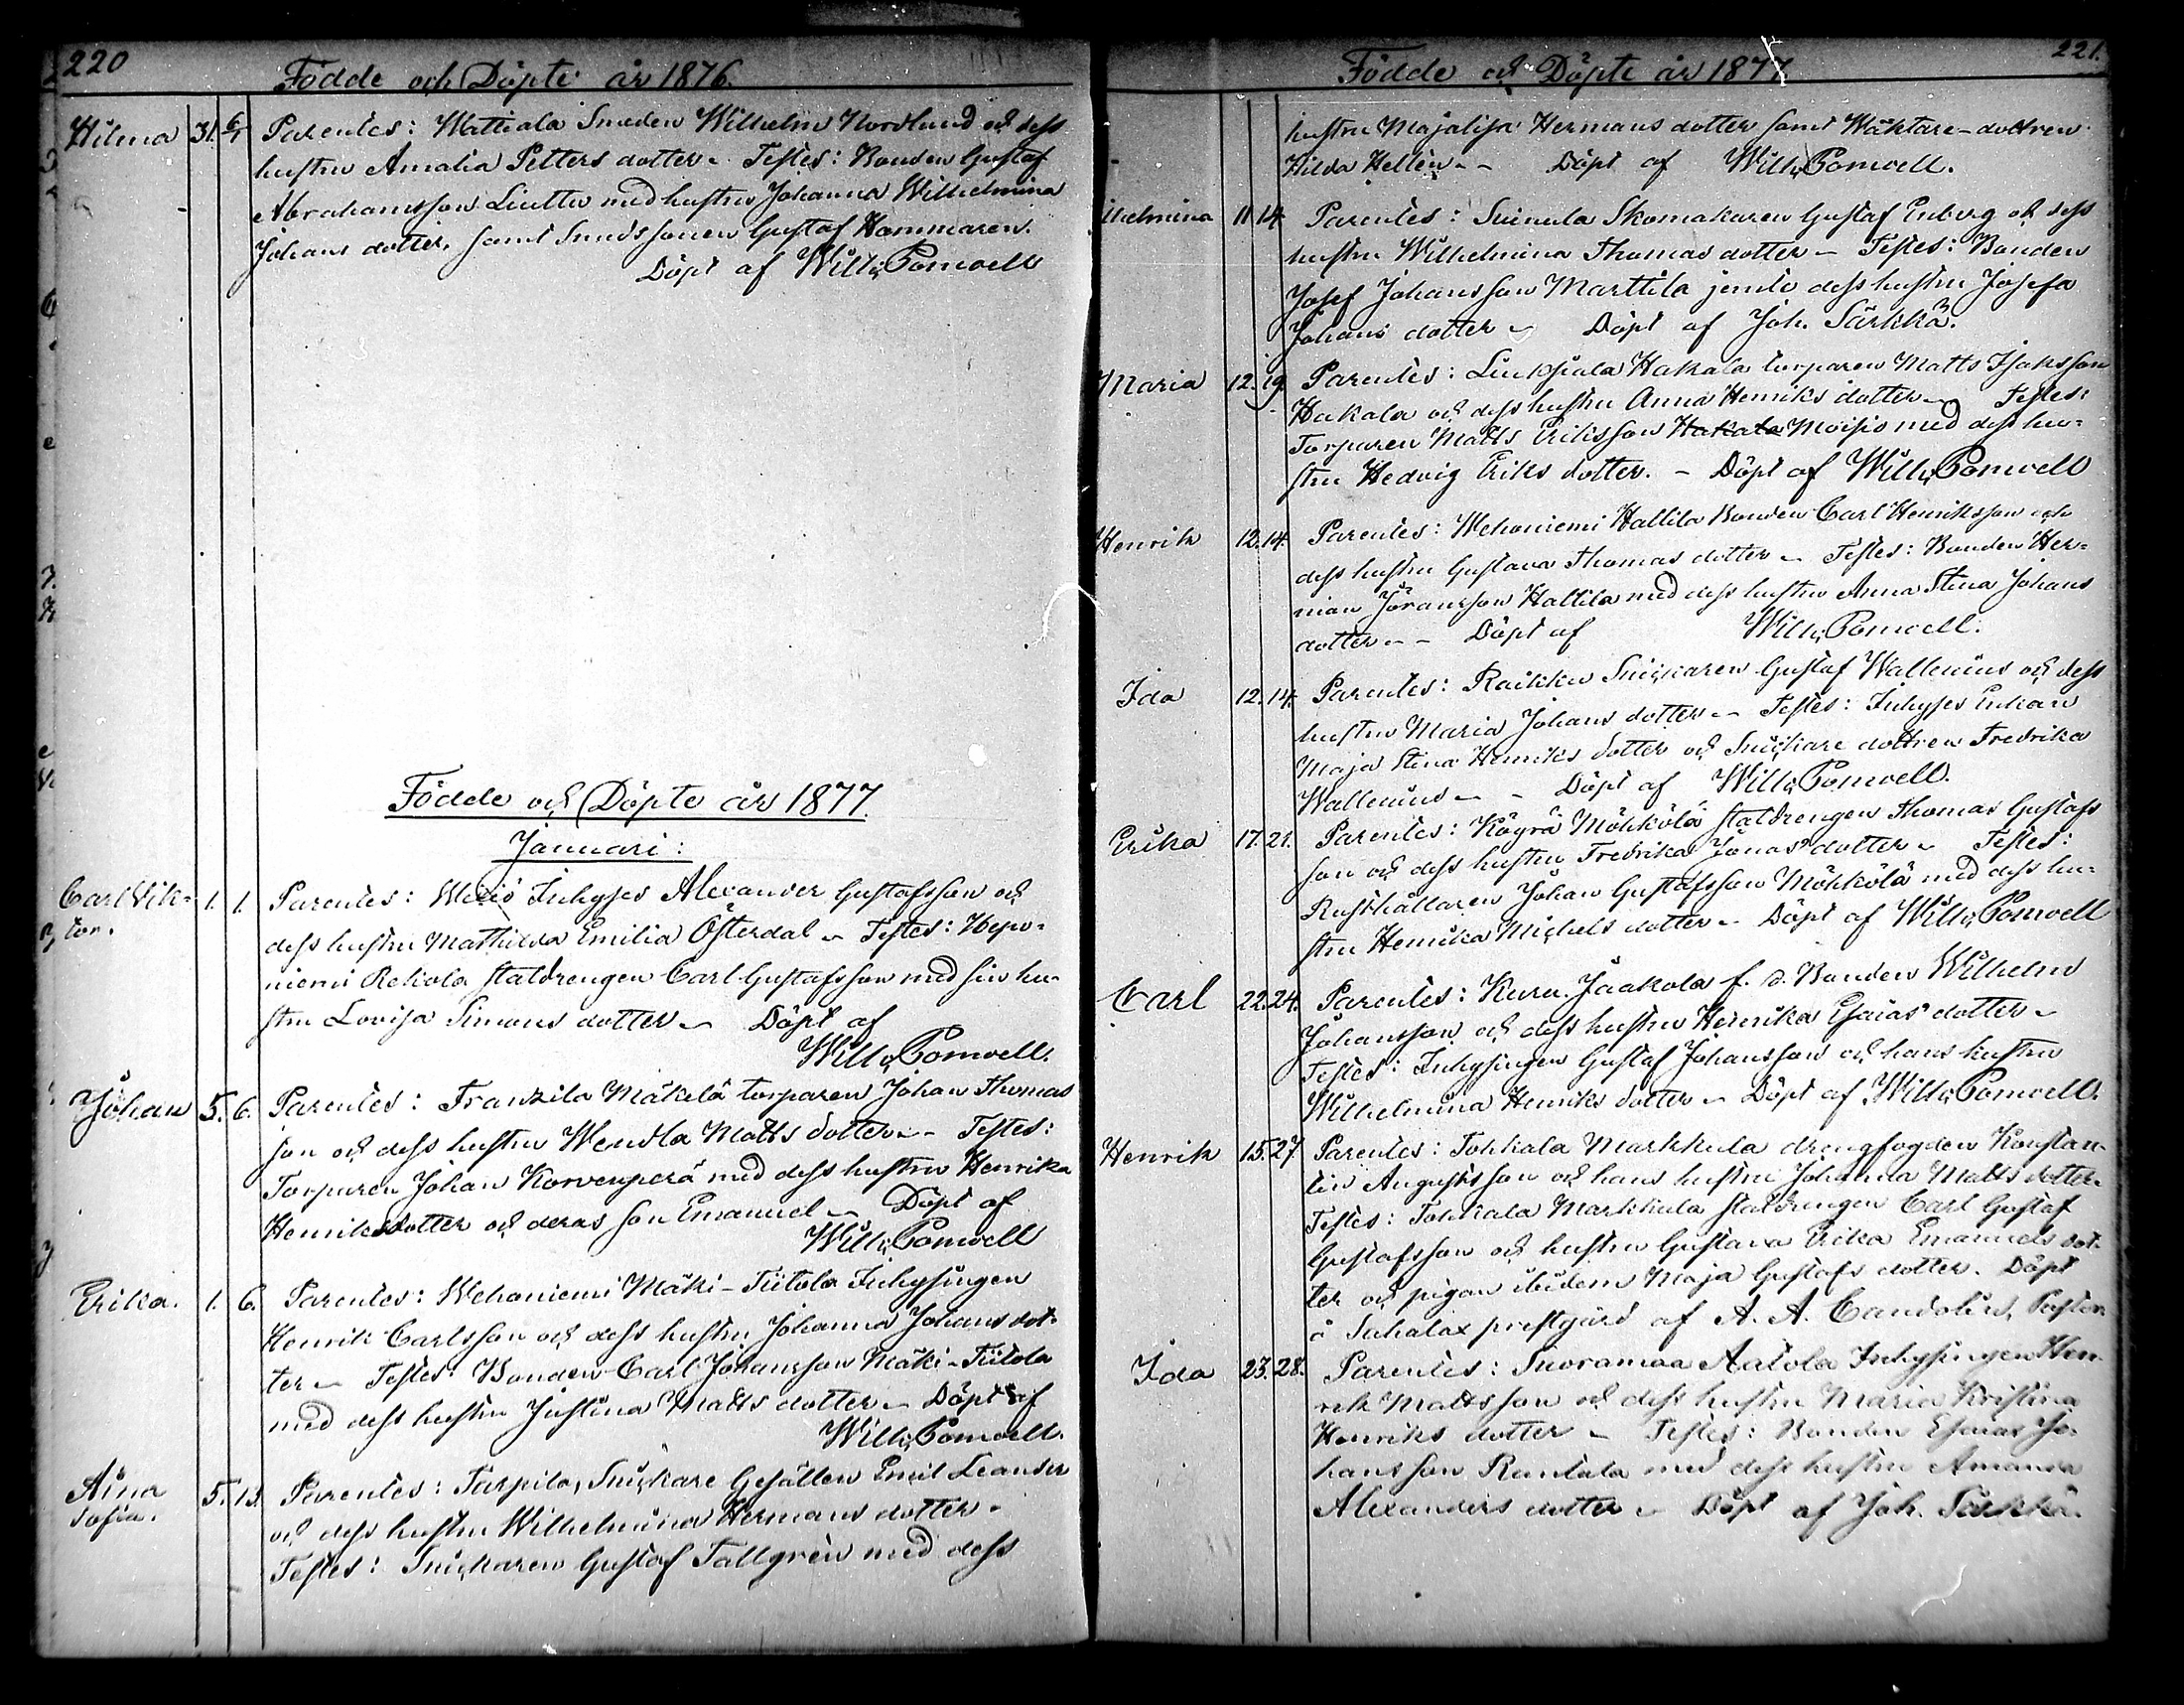 220
Födde och Döpte år 1876.
Hilma 31. 6/1 Parentes: Mattiala Smeden Wilhelm Nordlund och dess
hustru Amalia Petters dotter. - Testes: Bonden Gustaf
Abrahamsson Liutta med hustru Johanna Wilhelmina
Johans dotter, samt Smeds sonen Gustaf Hammaren.
Döpt af Wilh. Pomoell
Födde och Döpte år 1877.
Januari:
Carl Vik- 1. 1. Parentes: Inhyses Alexander Gustafsson och
tor. dess hustru Mathilda Emilia Österdal - Testes: Hepo-
niemi Rekola staldrengen Carl Gustafsson med sin hu-
stru Lovisa Simons dotter - Döpt af
Wilh. Pomoell.
Johan 5. 6. Parentes: Franzila Mäkelä torparen Johan Thomas
son och dess hustru Wendla Matts dotter. - Testes:
Torparen Johan Korvenperä med dess hustru Henrika
Henriksdotter och deras son Emanuel - Döpt af
Wilh. Pomoell
Erika. 1. 6. Parentes: Wehoniemi Mäki-Tiitola Inhysingen
Henrik Carlsson och dess hustru Johanna Johans dot-
ter - Testes: Bonden Carl Johansson Mäki-Tiitola
med dess hustru Justina Matts dotter - Döpt af
Wilh. Pomoell.
Aina 5. 13. Parentes: Tarpila, Snickare Gesällen Emil Leander
Sofia. och dess hustru Wilhelmina Hermans dotter -
Testes: Snickaren Gustaf Tallgren med dess
221.
Födde och Döpte år 1877
hustru Majalisa Hermans dotter samt Wäktare-dottren
Hilda Hellen - - Döpt af Wilh. Pomoell.
ilhelmina 11. 14. Parentes: Suinula Skomakaren Gustaf Enberg och dess
hustru Wilhelmina Thomas dotter - Testes: Bonden
Josef Johansson Marttila jemte dess hustru Josefa
Johans dotter - Döpt af Joh. Särkkä.
Maria 12. 19. Parentes: Liuksiala Hakala torparen Matts Isaksson
Hakala och dess hustru Anna Henriks dotter - Testes:
Torparen Matts Eriksson Hakala Moisio med dess hu-
stru Hedvig Eriks dotter. - Döpt af Wilh. Pomoell
Henrik 12. 14. Parentes: Wehoniemi Hallila Bonden Carl Henriksson och
dess hustru Gustava Thomas dotter - Testes: Bonden Her-
man Jöransson Hallila med dess hustru Anna Stina Johans
dotter - - Döpt af Wilh. Pomoell.
Ida 12. 14. Parentes: Raikku Snickaren Gustaf Wallenius och dess
hustru Maria Johans dotter - Testes: Inhyses Enkan
Maja Stina Henriks dotter och Snickare dottren Fredrika
Wallenius - - Döpt af Wilh. Pomoell.
Erika 17. 21. Parentes: Köyrä Möhkölä staldrengen Thomas Gustafs
son och dess hustru Fredrika Jonas dotter - Testes:
Rusthållaren Johan Gustafsson Möhkölä med dess hu-
stru Henrika Michels dotter - Döpt af Wilh. Pomoell
Carl 22. 24. Parentes: Kuru Jaakola f. d. Bonden Wilhelm
Johansson och dess hustru Henrika Esaias dotter -
Testes: Inhysingen Gustaf Johansson och hans hustru
Wilhelmina Henriks dotter - Döpt af Wilh. Pomoell.
Henrik 15. 27. Parentes: Tohkala Markkula drengfogden Konstan-
tin Augustsson och hans hustru Johanna Matts dotter
Testes: Tohkala Markkula staldrengen Carl Gustaf
Gustafsson och hustru Gustava Erika Emanuels dot-
ter och pigan ibidem Maja Gustafs dotter. Döpt
å Sahalax prestgård af A. A. Candolin, Pastor
Ida 23. 28. Parentes: Suoramaa Aatola Inhysingen Hen-
rik Mattsson och dess hustru Maria Kristina
Henriks dotter - Testes: Bonden Esaias Jo-
hansson Rantala med dess hustru Amanda
Alexanders dotter - Döpt af Joh. Särkkä.